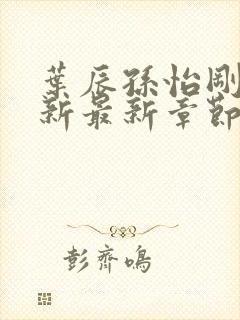 葉辰孫怡剛
新最新章節
彭齊鳴